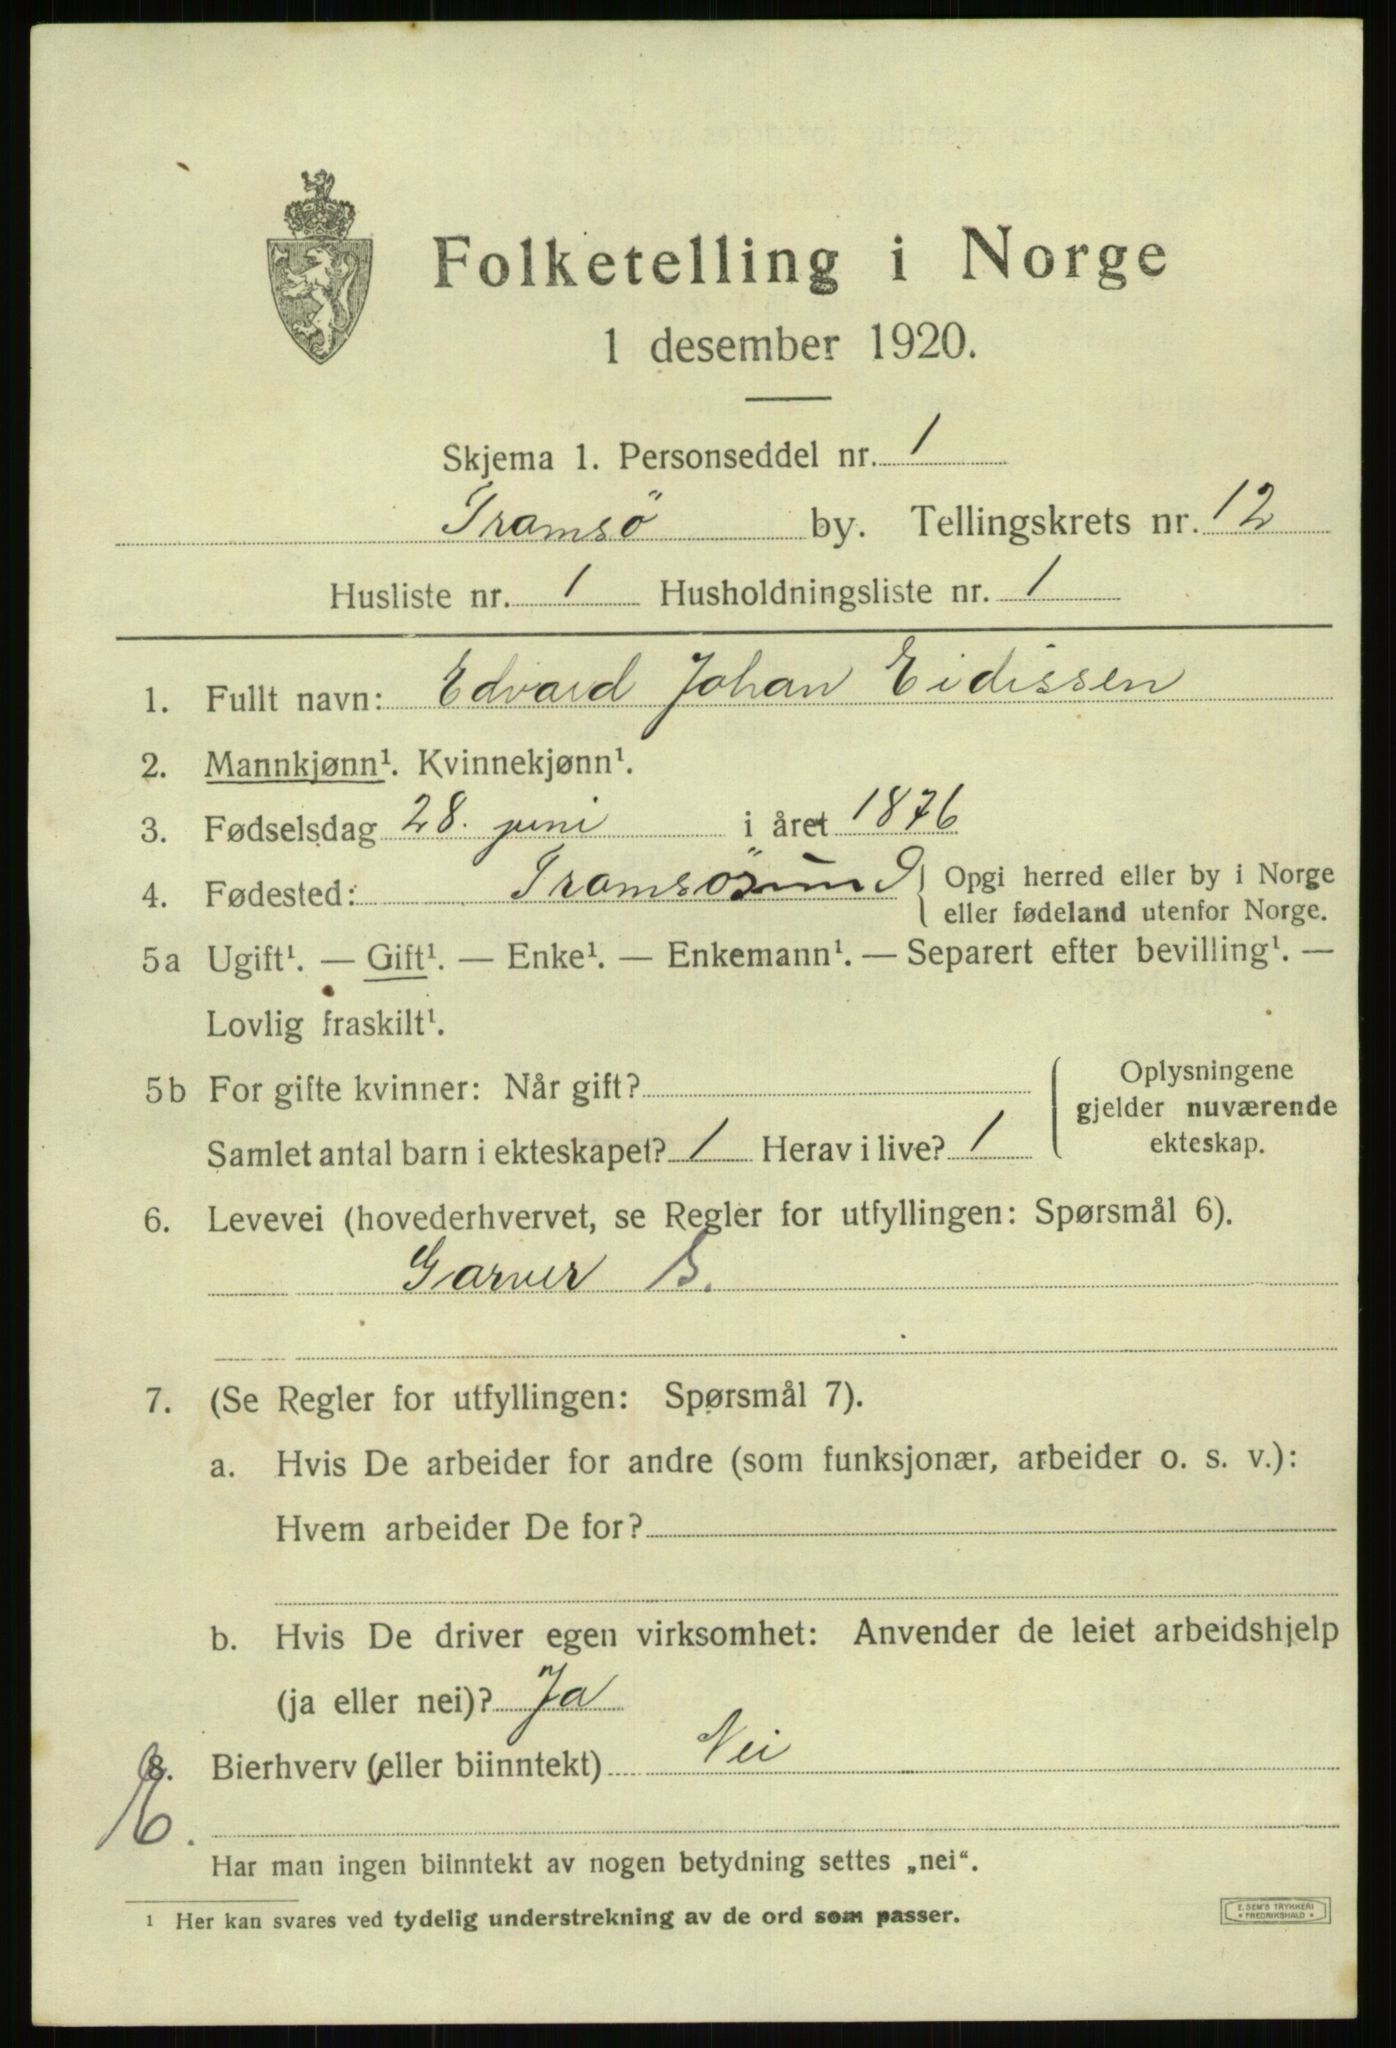 Folketelling i Norge
1 desember 1920.
Skjema 1. Personseddel nr. 1
Tromsö by. Tellingskrets nr. 12
Husliste nr. 1 Husholdningsliste nr. 1
1. Fullt navn: Edvard Johan Eidissen
2. Mannkjønn¹. Kvinnekjønn¹.
3. Fødselsdag 28. juni i året 1876
4. Fødested: Tromsösund { Opgi herred eller by i Norge
eller fødeland utenfor Norge.
5a Ugift¹. — Gift¹. — Enke¹. — Enkemann¹. — Separert efter bevilling¹. —
Lovlig fraskilt¹.
5b For gifte kvinner: Når gift?
Samlet antal barn i ekteskapet? 1 Herav i live? 1
Oplysningene
gjelder nuværende
ekteskap.
6. Levevei (hovederhvervet, se Regler for utfyllingen: Spørsmål 6).
Garver S.
7. (Se Regler for utfyllingen: Spørsmål 7).
a. Hvis De arbeider for andre (som funksjonær, arbeider o. s. v.):
Hvem arbeider De for?
b. Hvis De driver egen virksomhet: Anvender de leiet arbeidshjelp
(ja eller nei)? Ja
8. Bierhverv (eller biinntekt) Nei
Har man ingen biinntekt av nogen betydning settes „nei“.
1 Her kan svares ved tydelig understrekning av de ord som passer.
E. SEM'S TRYKKERI
FREDRIKSHALD